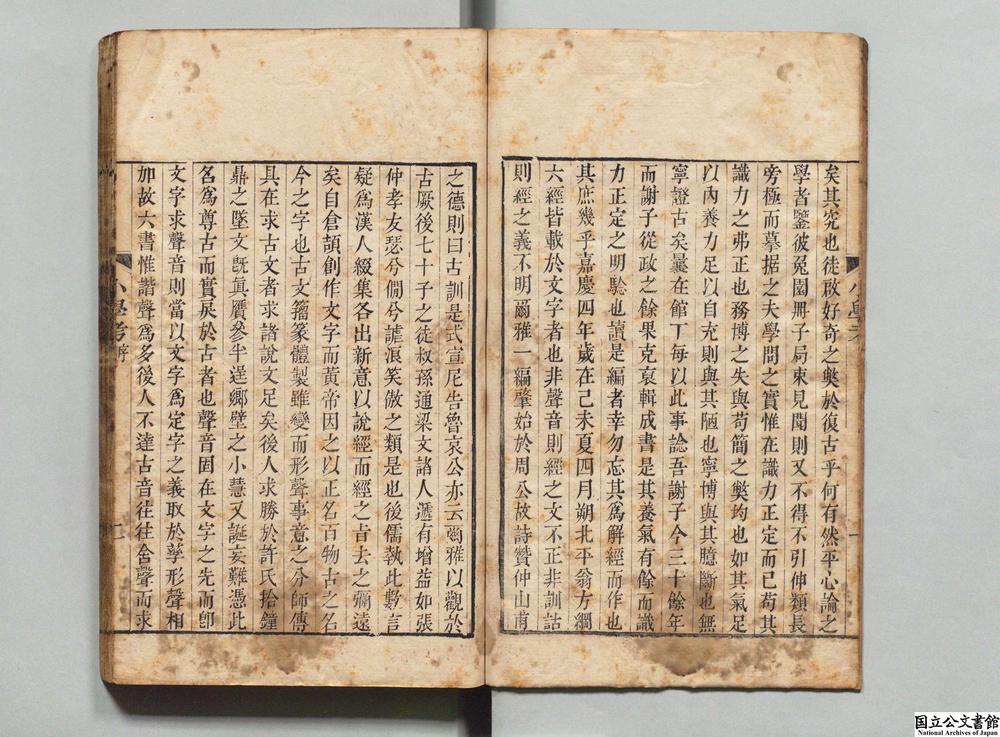 矣其究也徒啟好奇之獘於復古乎何有然平心論之
學者鑒彼兔園冊子局束見聞則又不得不引伸類長
旁極而摹据之夫學問之實惟在識力正定而已苟其
識力之弗正也務博之失與苟簡之獘均也如其氣足
以內養力足以自充則與其陋也寧博與其臆斷也無
寧證古矣曩在館下每以此事諗吾謝子今三十餘年
而謝子從政之餘果克裒輯成書是其養氣有餘而識
力正定之明驗也讀是編者幸勿忘其爲解經而作也
其庶幾乎嘉慶四年歲在己未夏四月朔北平翁方綱
六經皆載於文字者也非聲音則經之文不正非訓詁
則經之義不明爾雅一編肇始於周公故詩贊仲山甫
之德則曰古訓是式宣尼告魯哀公亦云爾雅以觀於
古厥後七十子之徒叔孫通梁文諸人遞有增益如張
仲孝友瑟兮僩兮謔浪笑傲之類是也後儒執此數言
疑爲漢人綴集各出新意以說經而經之旨去之彌遠
矣自倉頡創作文字而黃帝因之以正名百物古之名
今之字也古文籀篆體製雖變而形聲事意之分師傳
具在求古文者求諸說文足矣後人求勝於許氏拾鐘
鼎之墜文旣眞贋參半逞鄉壁之小慧又誕妄難憑此
名爲尊古而實戾於古者也聲音固在文字之先而卽
文字求聲音則當以文字爲定字之義取於孳形聲相
加故六書惟諧聲爲多後人不達古音往往舍聲而求
小學考
二
国立公文書館
National Archives of Japan